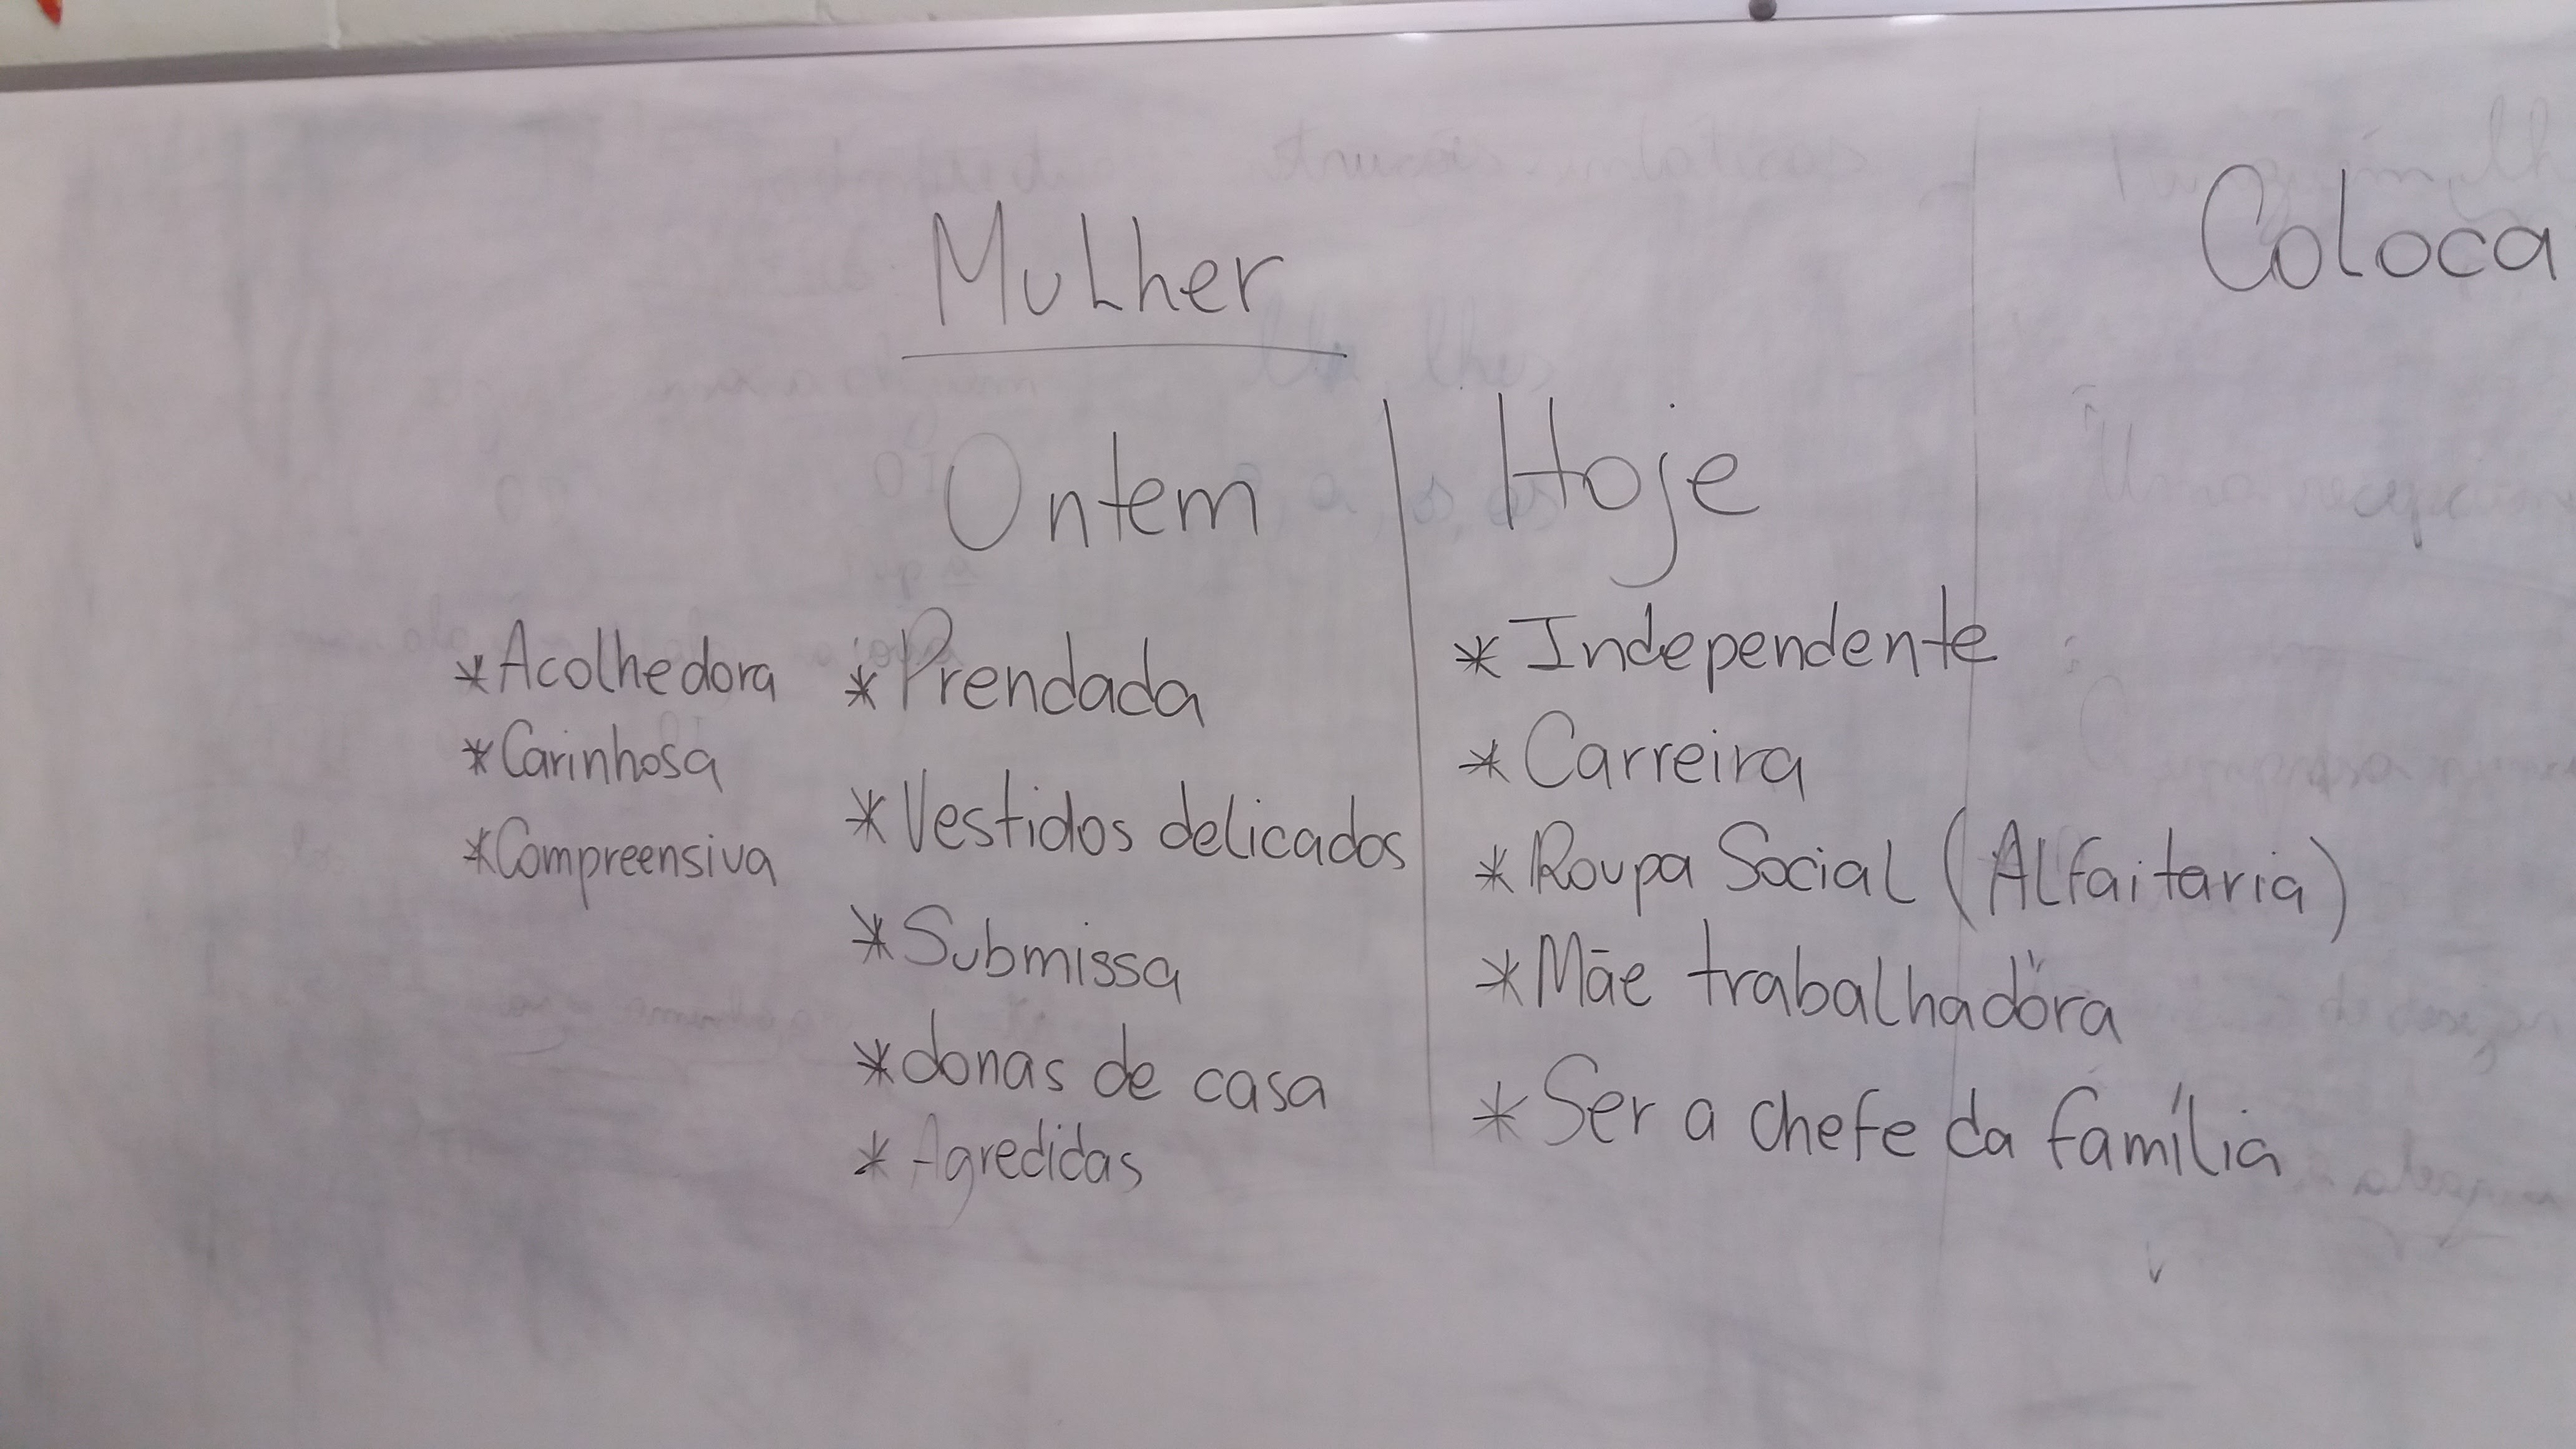 Mulher
Coloca
Ontem
Hoje
* Acolhedora
* Carinhosa
* Compreensiva
* Prendada
* Vestidos delicados
* Submissa
* donas de casa
* Agredidas
* Independente
* Carreira
* Roupa Social (Alfaitaria)
* Mãe trabalhadora
* Ser a chefe da família